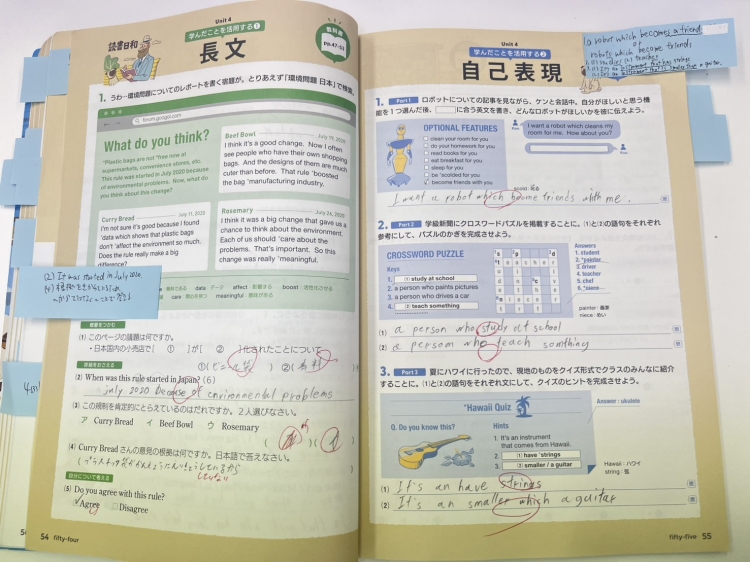 Unit 4
学んだことを活用する❶
読書日和
長文
教科書
pp.47-53
1. うわ…環境問題についてのレポートを書く宿題が。とりあえず「環境問題 日本」で検索。
forum.googoi.com
What do you think?
"Plastic bags are not *free now at
supermarkets, convenience stores, etc.
This rule was started in July 2020 because
of environmental problems. Now, what do
you think about this change?
Beef Bowl
July 19, 2020
I think it's a good change. Now I often
see people who have their own shopping
bags. And the designs of them are much
cuter than before. That rule *boosted
the bag *manufacturing industry.
Curry Bread
July 11, 2020
I'm not sure it's good because I found
*data which shows that plastic bags
don't *affect the environment so much.
Does the rule really make a big
difference?
Rosemary
July 26, 2020
I think it was a big change that gave us a
chance to think about the environment.
Each of us should *care about the
problems. That's important. So this
change was really *meaningful.
data データ
affect 影響する
boost 活性化させる
care 関心を持つ
meaningful 意味がある
(2) It was started in July 2020.
概要をつかむ
(1) このページの話題は何ですか。
・日本国内の小売店で[ ① ]が[ ② ]化されたことについて
①( ) ②(有料)
詳細をおさえる
(2) When was this rule started in Japan? (6)
july 2020 Because of environmental problems
(3) この規制を肯定的にとらえているのはだれですか。2人選びなさい。
ア Curry Bread イ Beef Bowl ウ Rosemary
(4) Curry Bread さんの意見の根拠は何ですか。日本語で答えなさい。
していない
自分について考える
(5) Do you agree with this rule?
Agree
Disagree
54 fifty-four
Unit 4
学んだことを活用する❷
自己表現
a robot which becomes a friend
or
robots which become friends
1. Part 1 ロボットについての記事を見ながら、ケンと会話中。自分がほしいと思う機
能を1つ選んだ後、 に合う英文を書き、どんなロボットがほしいかを彼に伝えよう。
OPTIONAL FEATURES
clean your room for you
do your homework for you
read books for you
eat breakfast for you
sleep for you
be *scolded for you
become friends with you
I want a robot which cleans my
room for me. How about you?
Ken
You
I want a robot which become friends with me.
2. Part 2 学級新聞にクロスワードパズルを掲載することに。(1)と(2)の語句をそれぞれ
参考にして、パズルのかぎを完成させよう。
CROSSWORD PUZZLE
Keys
1. (1) study at school
2. a person who paints pictures
3. a person who drives a car
4. (2) teach something
Answers
1. student
2. *painter
3. driver
4. teacher
5. chef
6. *niece
painter : 画家
niece : めい
(1) a person who study at school
(2) a person who teach somthing
3. Part 3 夏にハワイに行ったので、現地のものをクイズ形式でクラスのみんなに紹介
することに。(1)と(2)の語句をそれぞれ文にして、クイズのヒントを完成させよう。
*Hawaii Quiz
Answer : ukulele
Q. Do you know this?
Hints
1. It's an instrument
that comes from Hawaii.
2. (1) have *strings
3. (2) smaller / a guitar
Hawaii : ハワイ
string : 弦
(1) It's an have strings
(2) It's an smaller which a guitar
fifty-five 55